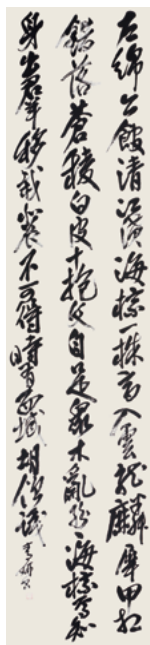 左綿公館清江濆海棕一株高入雲龍麟犀甲相
錯落蒼稜白皮十抱文自是眾木亂紛紛海棕焉知
身出群移栽北辰不可得時有西域胡僧識